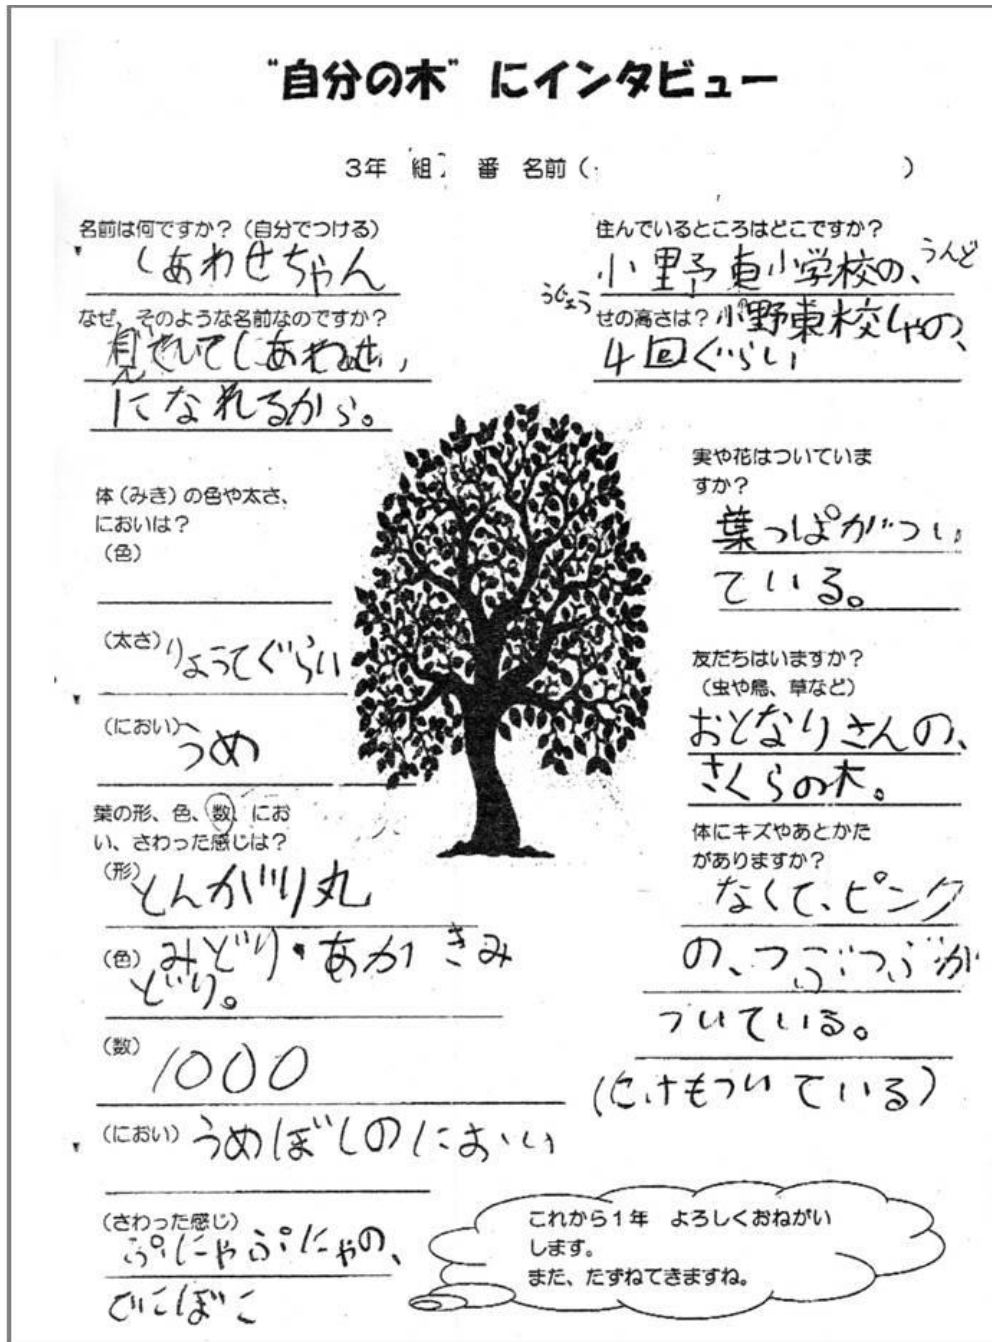 "自分の木" にインタビュー
3年 組 番 名前( )
名前は何ですか?(自分でつける)
しあわせちゃん
なぜ、そのような名前なのですか?
見ていてしあわせ
になれるから。
体(みき)の色や太さ、
においは?
(色)
(太さ)りょうてぐらい
(におい)うめ
葉の形、色、数、にお
い、さわった感じは?
(形)とんがり丸
(色)みどり・あか きみ
どり。
(数)1000
(におい)うめぼしのにおい
(さわった感じ)
ぷにゃぷにゃの、
でこぼこ
住んでいるところはどこですか?
小野東小学校の、うんど
うじょう
せの高さは?小野東校しゃの、
4回ぐらい
実や花はついていま
すか?
葉っぱがつい
ている。
友だちはいますか?
(虫や鳥、草など)
おとなりさんの、
さくらの木。
体にキズやあとかた
がありますか?
なくて、ピンク
の、つぶつぶが
ついている。
もついている)
これから1年 よろしくおねがい
します。
また、たずねてきますね。